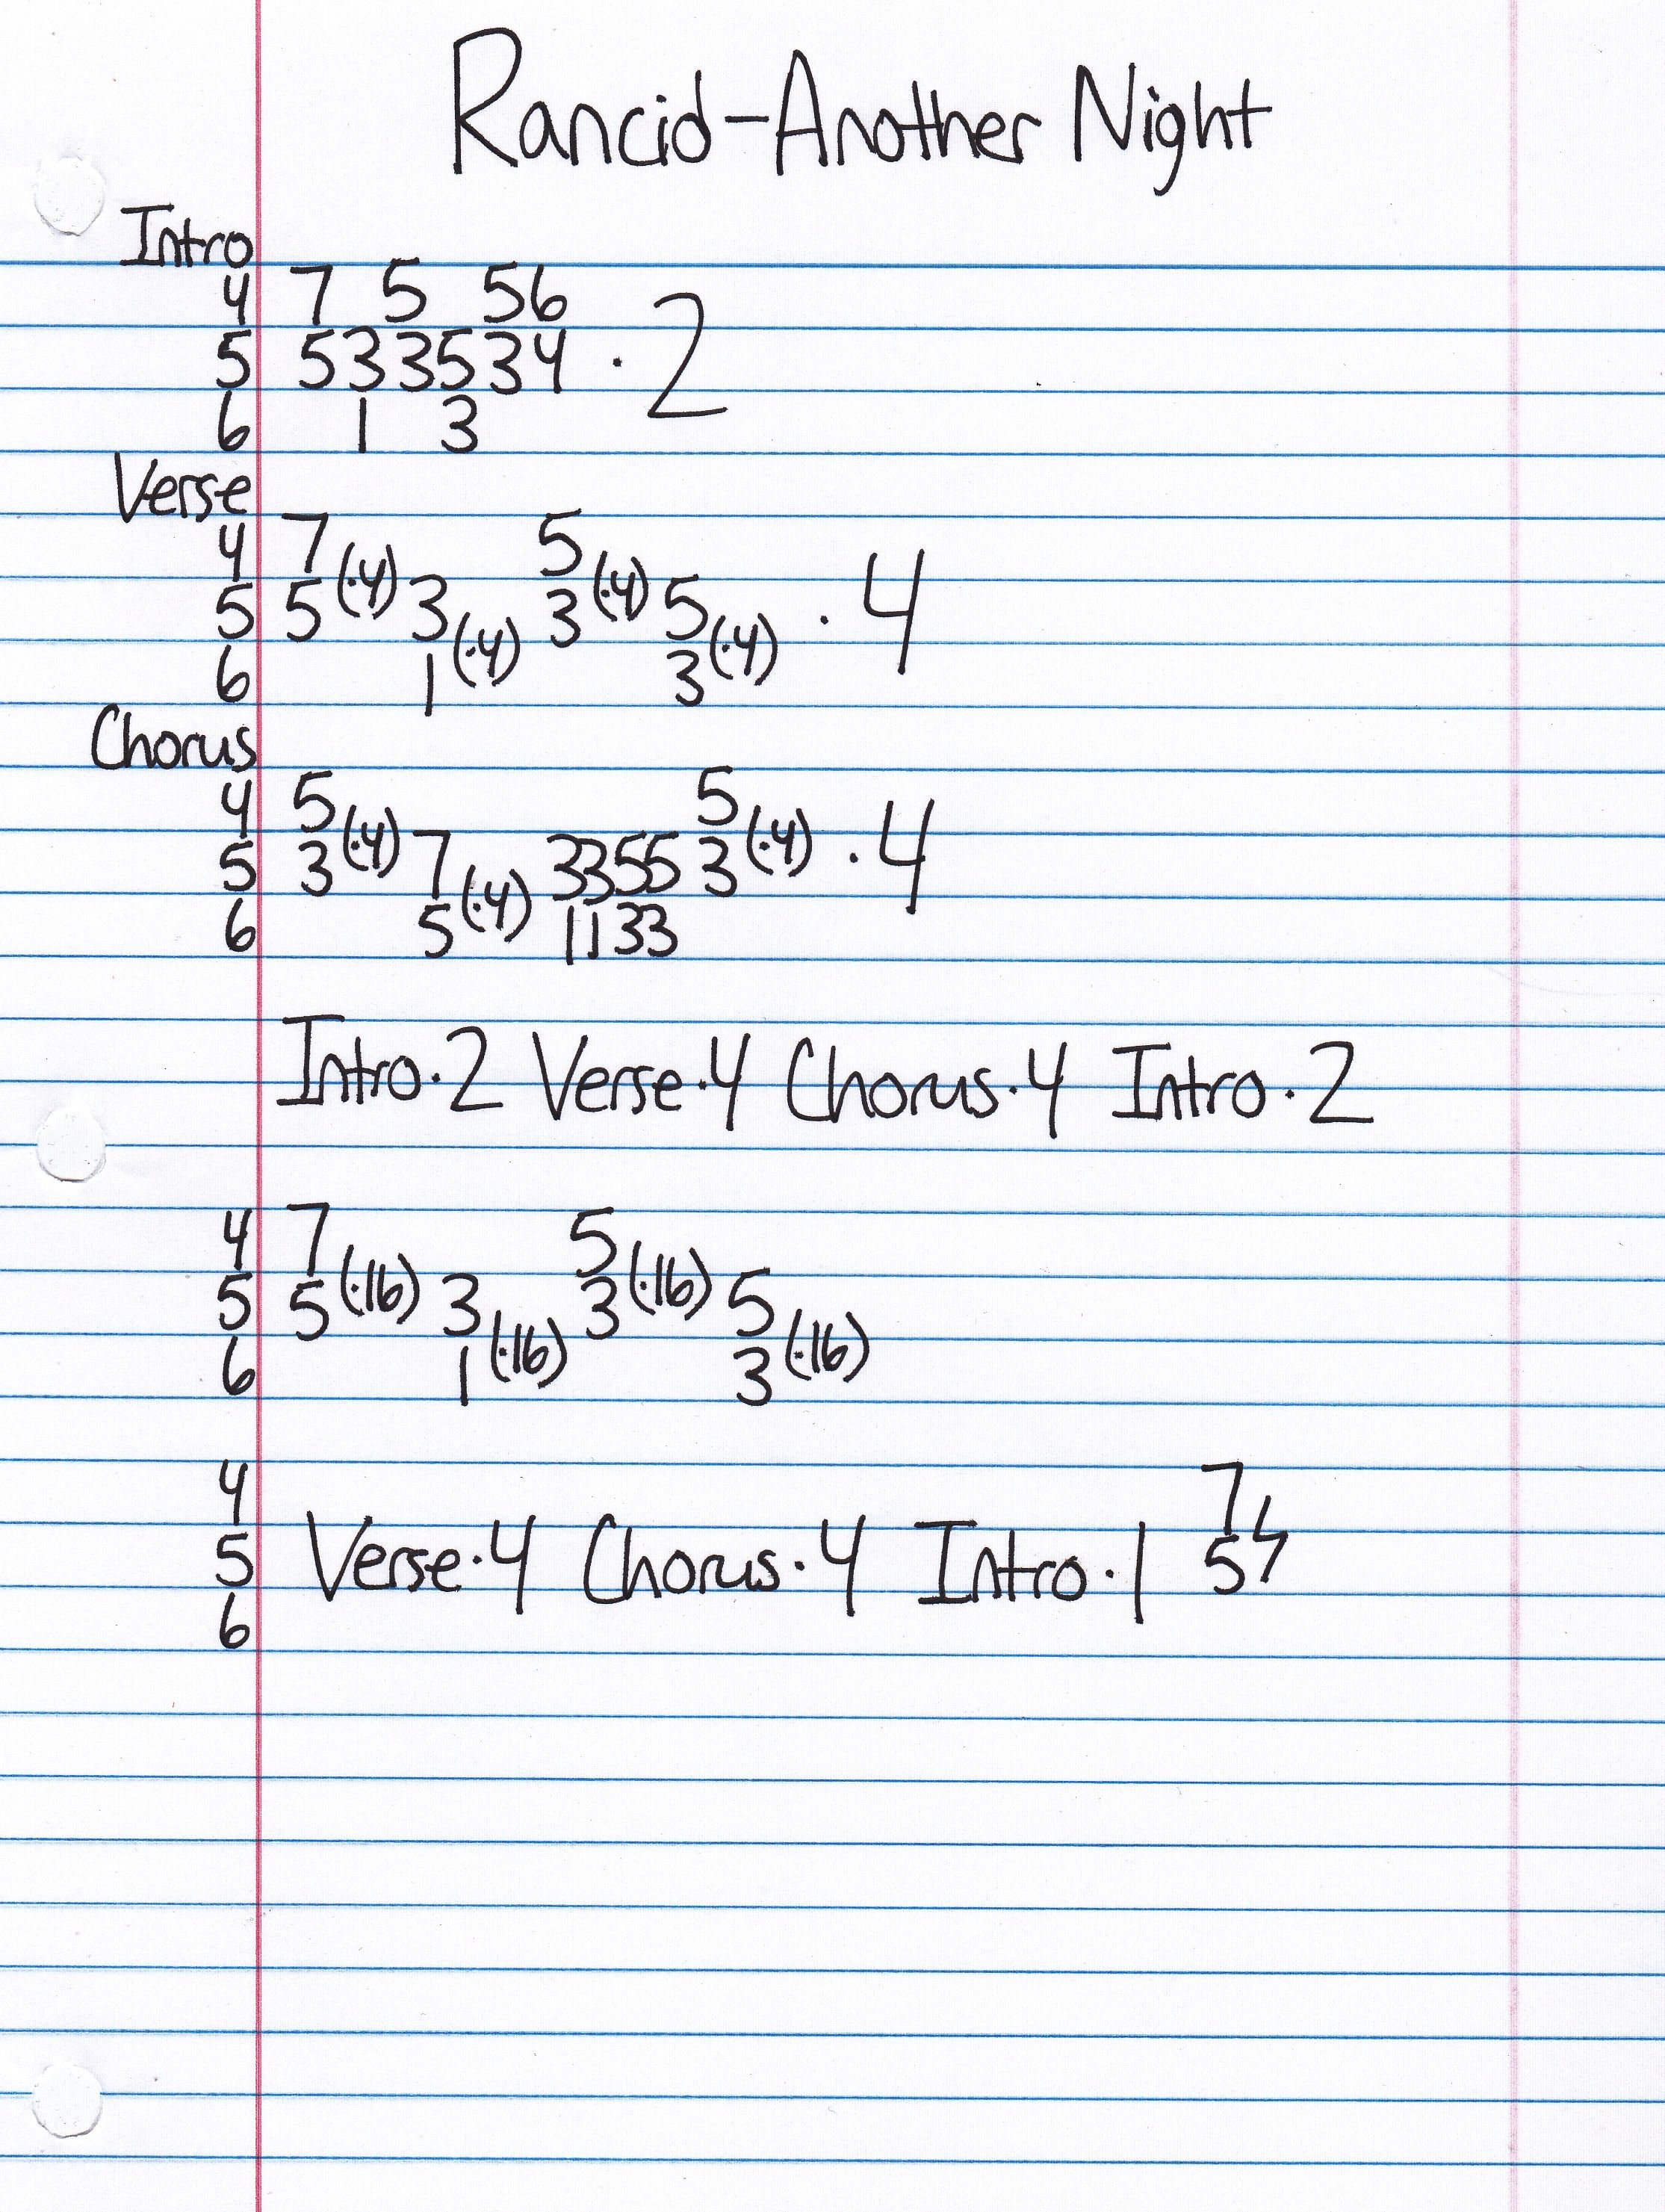 Rancid-Another Night
Intro
4 7 5 56
5 533534 · 2
6 1 3
Verse
4 7 5
5 5 (·4) 3 3 (·4) 5 · 4
6 1 (·4) 3 (·4)
Chorus
4 5 5
5 3 (·4) 7 3355 3 (·4) · 4
6 5 (·4) 1133
Intro·2 Verse·4 Chorus·4 Intro·2
4 7 5
5 5 (·16) 3 3 (·16) 5
6 1 (·16) 3 (·16)
4 7
5 Verse·4 Chorus·4 Intro·1 5
6